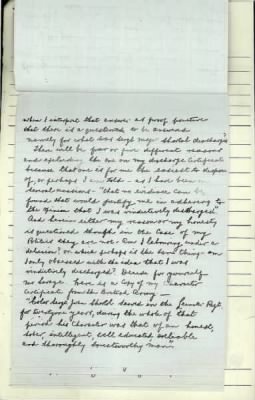 when I interpret that answer as proof positive
that there is a questioned to be answered
namely for what was Sergt Major Sholdt discharged?
There will be four or five different reasons
and excluding the one on my discharge certificate
because that one is for me the easiest to dispose
of, or perhaps I am told - as I have been
several occasions - "that no evidence can be
found that would justify me in adhering to
the opinion that I was vindictively discharged"
and herein either my reason or my honesty
is questioned though in the case of my
they are not. Am I labouring under a
delusion? or which perhaps is the same thing - am
I only obsessed with the idea that I was
vindictively discharged? Decide for yourself
no longer. Here is a Copy of my Character
Certificate from the British Army
"Color Sergt Sholdt served in the Regt
for twentyone years, during the whole of that
period his character was that of an honest,
sober, intelligent, well educated
and thoroughly trustworthy man"